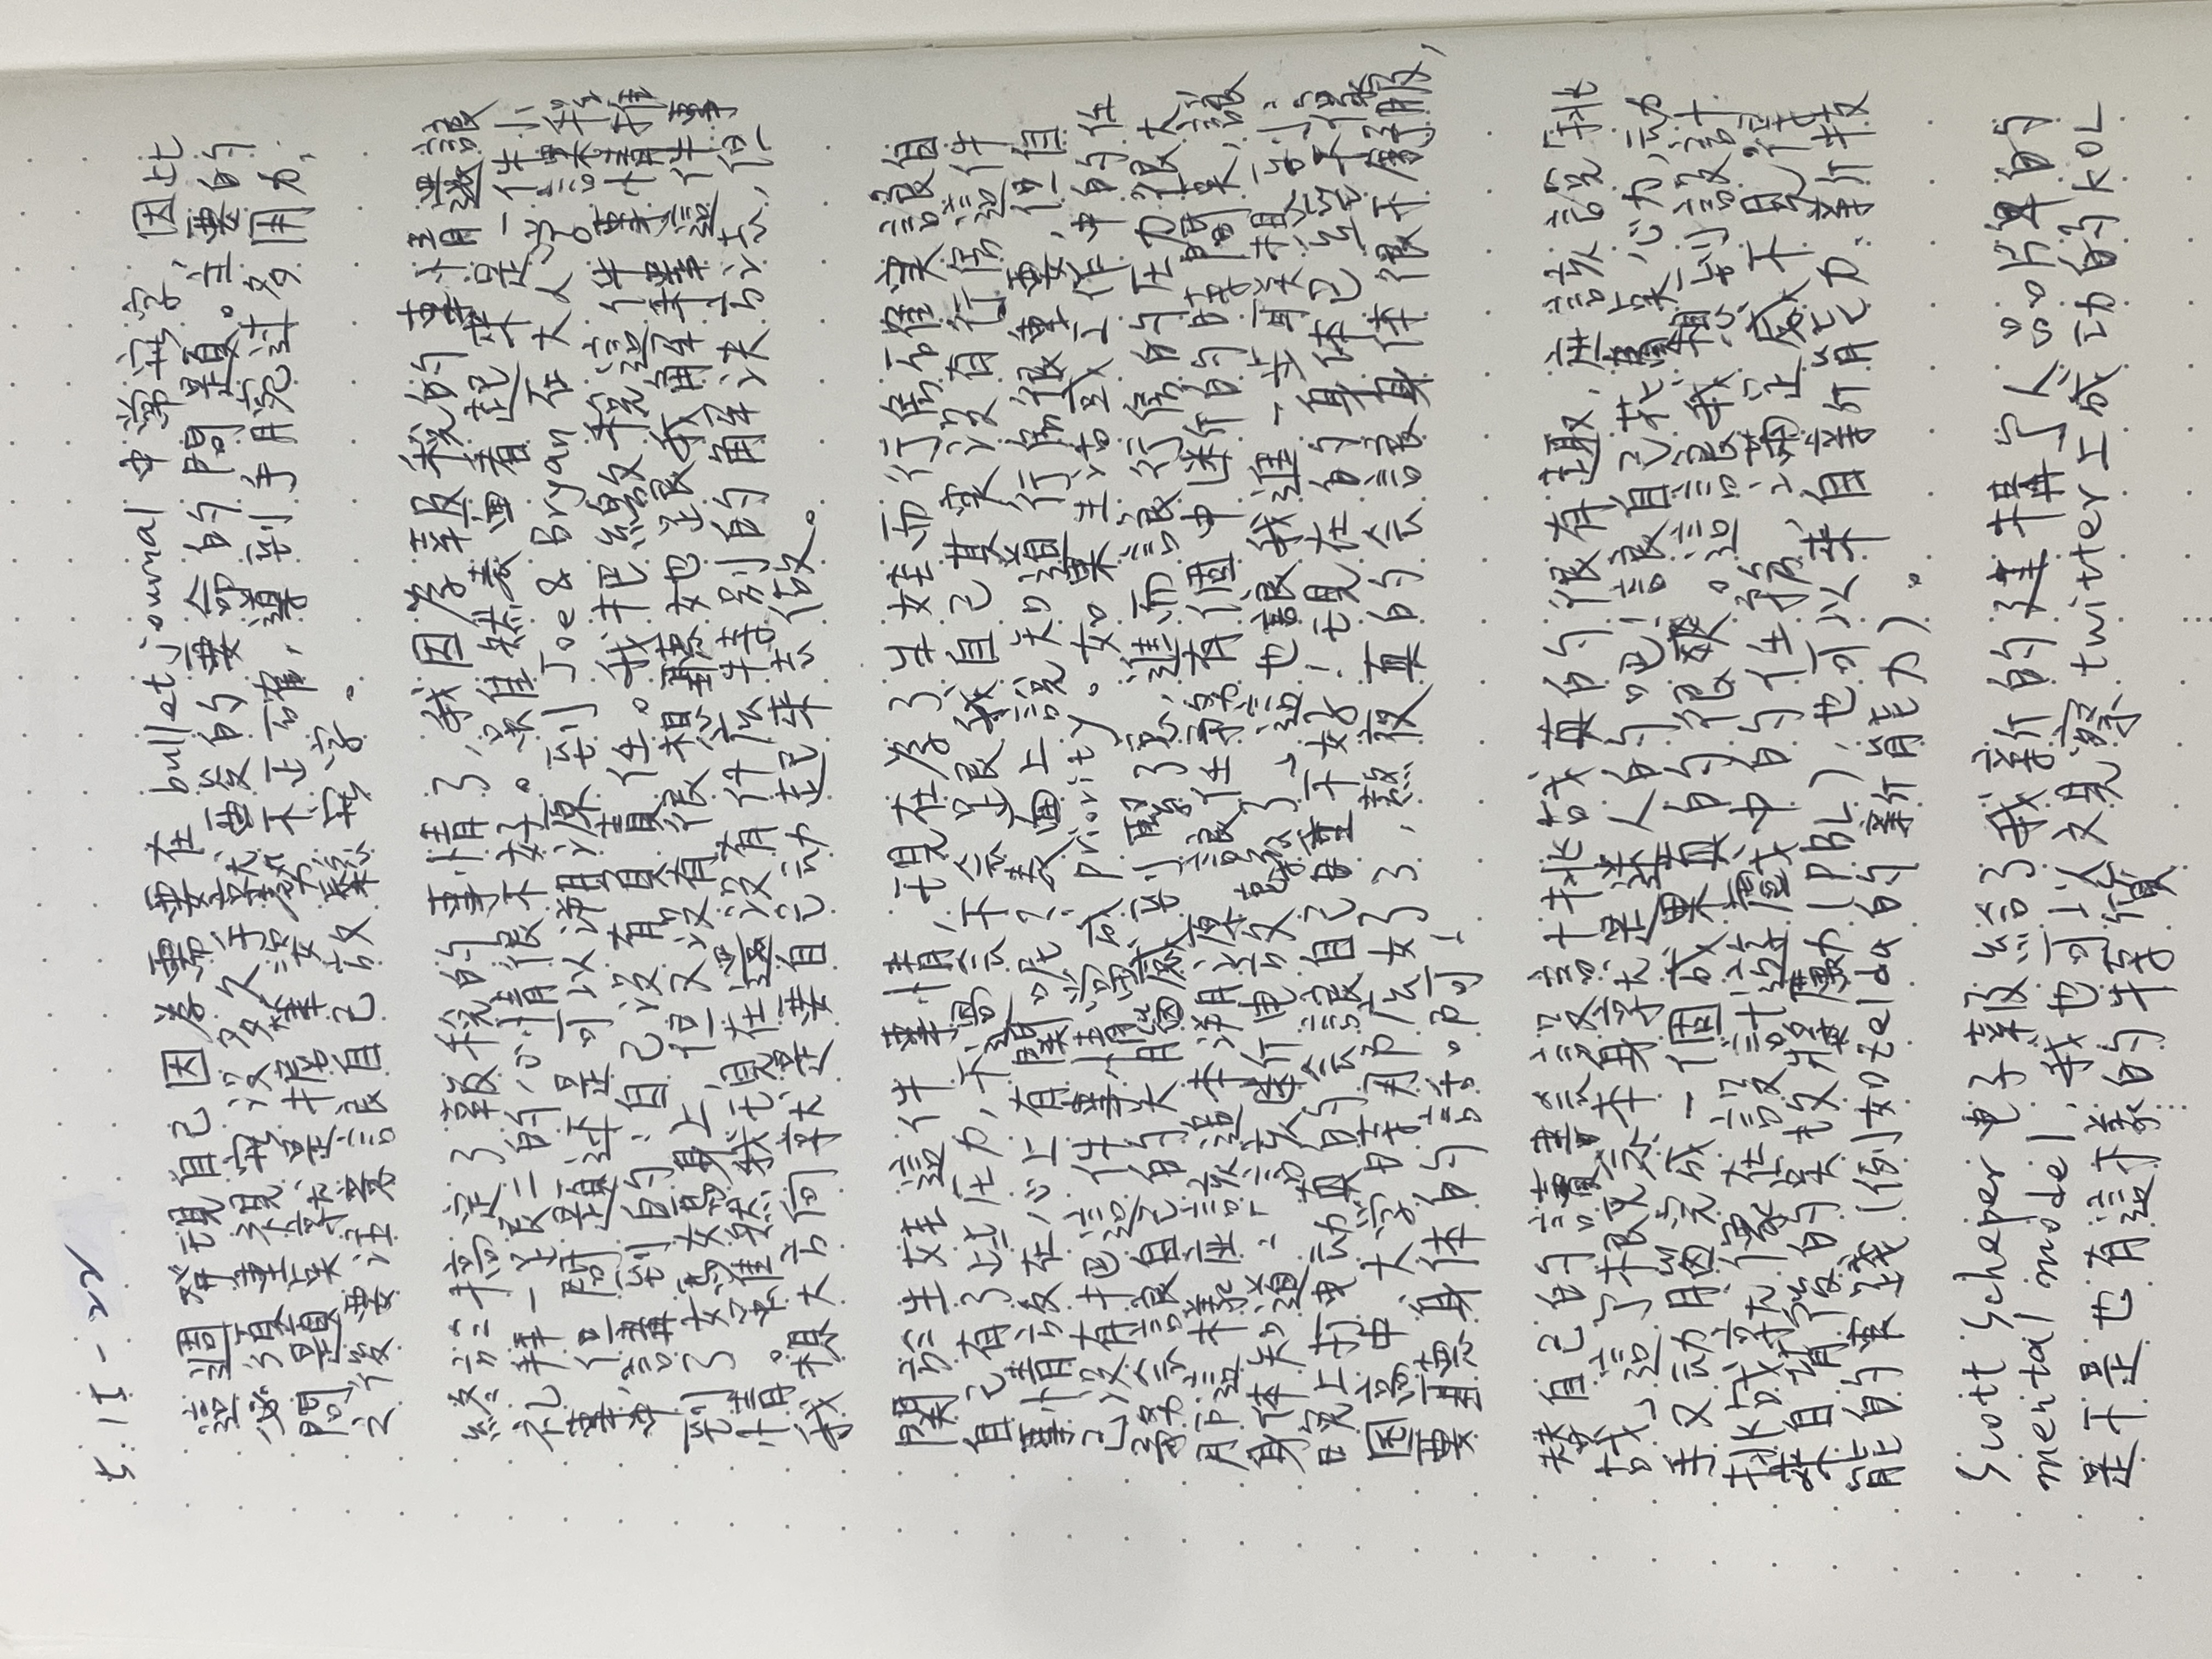 5.15-22
這週發現自己因為需要在 bullet journal 中常寫字,因此
必須重視寫沒多久手就酸的要命的問題。主要的
問題點就是握筆姿勢不正確,導到手腕过多用力,
之後要注意讓自己放鬆寫字。
終於搞定了報稅的事情了,我因為報稅的事情還讓
礼拜一跟二的心情很不好。雖然表面看起來是一件小
事,但問題还是可以溯源到 Joe & Bryan 在大人学課程
中講到的:自己没有負責任。我把繳稅這件事情推
到了媽媽身上,但又没有很想聽她跟我解釋這件事
情。雖然我現在還没有什広特别的解決方法,但
我想大方向就是要自己动起來去做。
関於生娃這件事情,現在為了生娃而行房确實讓自
自己有了些圧力,不過会不会跟我自己其实没有行房這件
事情放在心上有関呢?表面上說知道行房很重要,但自
己没有把這件事情當成 priority。如果生活或工作中的任
務会讓自己的大脑感到緊了張,進而讓行房的圧力很大,
那這樣应該追本溯源,讓任務有個中断的時間点,讓
身体知道:「該断电放鬆了」這也讓我進一步联想到:
晚上打电动真的会讓自己睡不好!現在的身体已经不像
国高中、大学時那広好了,熬夜真的会讓身体很不舒服,
要聽身体的話啊!
替自己的讀書会設計挑战真的很有趣,应該說「挑
战」這个概念本身就是迷人的吧!讓自己花費点心力,动
手又动脑完成一個成果真的很爽。這讓我想到設計
挑战就像在設計遊戲中的任務,滿足感不見得
來自背後的点数獎勵(PBL),也可以來自新能力、新技
能的実踐(例如Zelda的新能力)。
Scott Scheper 电子報給了我新的建構个人品牌的
mental model,我也可以观察 twitter 上成功的 KOL
是不是也有這樣的特質